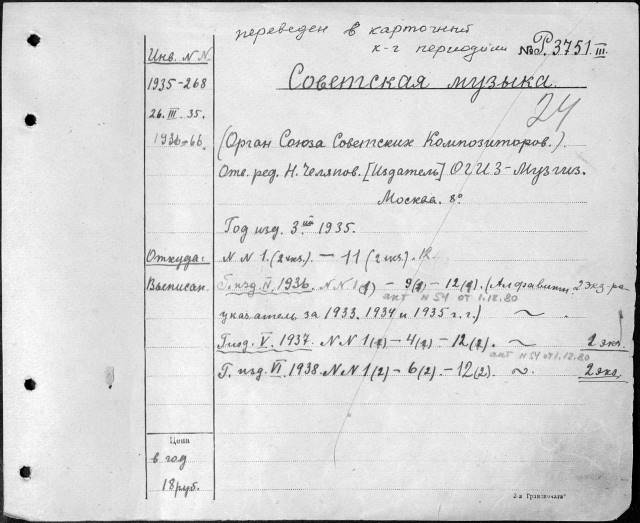 переведен в карточный
к-г периодики № Р.3751 III
Инв. N.N.
Советская музыка.
1935-268
24
26.III.35.
1936-66
(Орган Союза Советских Композиторов.)
Отв. ред. Н. Челяпов. [Издатель] ОГИЗ-Музгиз.
Москва. 8°
Год изд. 3-ий 1935.
Откуда:
N.N 1.(2 экз.) — 11 (2 экз.). 12
Выписан.
Г. изд. IV. 1936. N.N 1( ) — 9( ) — 12( ). (Алфавитн. 2 экз-ра
акт N 54 от 1.12.80
указатель за 1933, 1934 и 1935 г.г.) ~
Г. изд. V. 1937. N.N 1( ) — 4( ) — 12( ). ~ 2 экз.
акт N 54 от 1.12.80
Г. изд. VI. 1938. N.N 1(2) — 6(2). — 12(2). ~ 2 экз.
Цена
в год
18 руб.
3-я Гравпечать